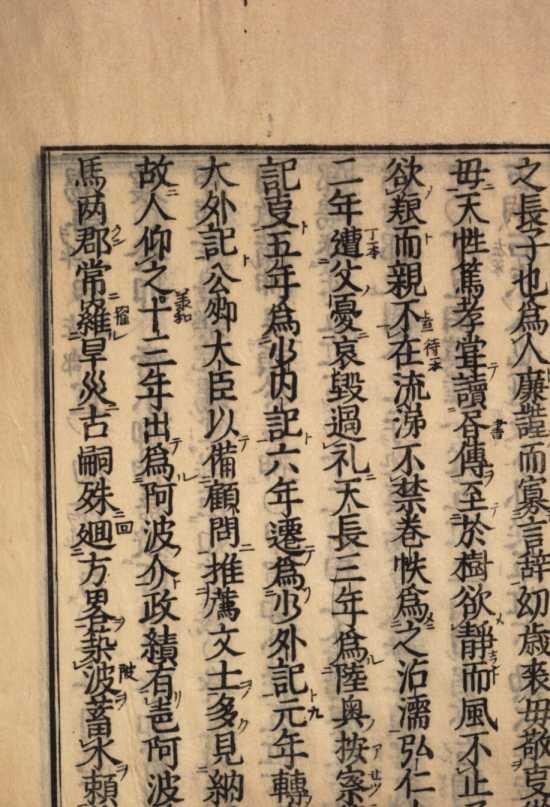 之長子也爲人廉謹而寡言辞幼歳喪母敬
母天性篤孝甞讀吾傳至於樹欲靜而風不止
欲粮而親不在流涕不禁卷帙爲之沾濡弘仁
二年遭父憂哀毀過礼天長三年爲陸奥按察
記五年爲少内記六年遷爲少外記元年轉
大外記公卿大臣以備顧問推薦文士多見納
故人仰之十三年出爲阿波介政績有邑阿波
馬两郡常罹旱災古嗣殊廻方畧築波蓄水頼